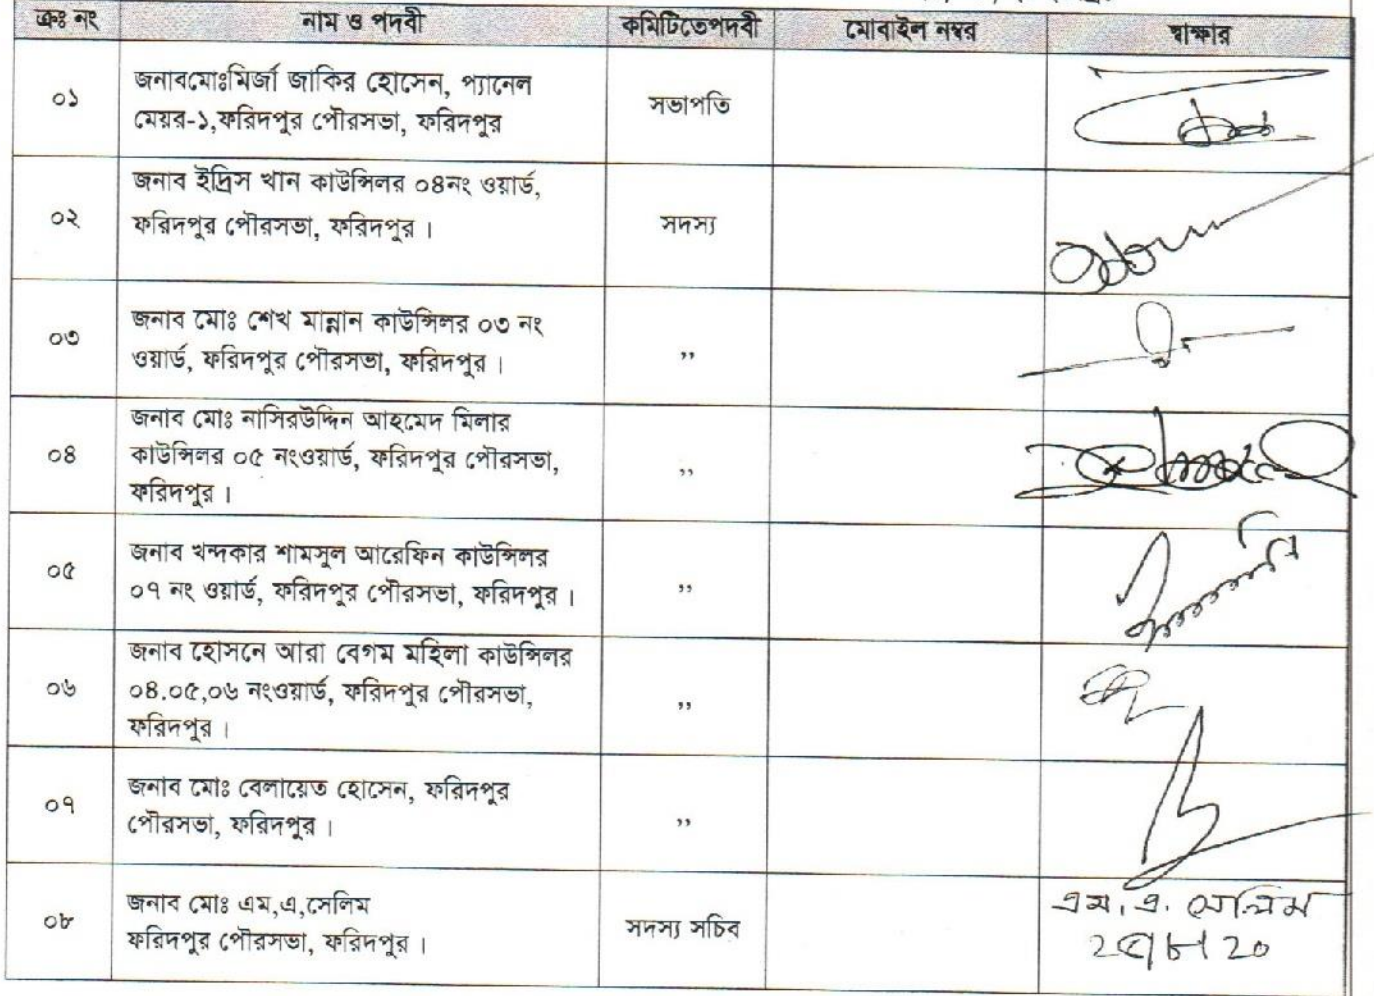 ক্রঃ নং নাম ও পদবী কমিটিতেপদবী মোবাইল নম্বর স্বাক্ষার
০১ জনাবমোঃমির্জা জাকির হোসেন, প্যানেল
মেয়র-১,ফরিদপুর পৌরসভা, ফরিদপুর সভাপতি
০২ জনাব ইদ্রিস খান কাউন্সিলর ০৪নং ওয়ার্ড,
ফরিদপুর পৌরসভা, ফরিদপুর । সদস্য
০৩ জনাব মোঃ শেখ মান্নান কাউন্সিলর ০৩ নং
ওয়ার্ড, ফরিদপুর পৌরসভা, ফরিদপুর । ,,
০৪ জনাব মোঃ নাসিরউদ্দিন আহমেদ মিলার
কাউন্সিলর ০৫ নংওয়ার্ড, ফরিদপুর পৌরসভা,
ফরিদপুর । ,,
০৫ জনাব খন্দকার শামসুল আরেফিন কাউন্সিলর
০৭ নং ওয়ার্ড, ফরিদপুর পৌরসভা, ফরিদপুর । ,,
০৬ জনাব হোসনে আরা বেগম মহিলা কাউন্সিলর
০৪.০৫,০৬ নংওয়ার্ড, ফরিদপুর পৌরসভা,
ফরিদপুর । ,,
০৭ জনাব মোঃ বেলায়েত হোসেন, ফরিদপুর
পৌরসভা, ফরিদপুর । ,,
০৮ জনাব মোঃ এম,এ,সেলিম
ফরিদপুর পৌরসভা, ফরিদপুর । সদস্য সচিব
এম. এ. সেলিম
২৫/৮/২০